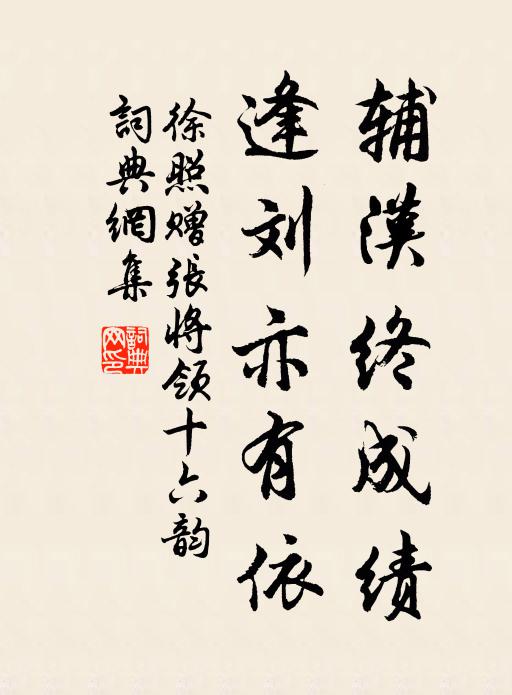 辅漢终成绩
逢刘亦有依
徐照赠張将领十六韵
詞典網集
詞典
网印